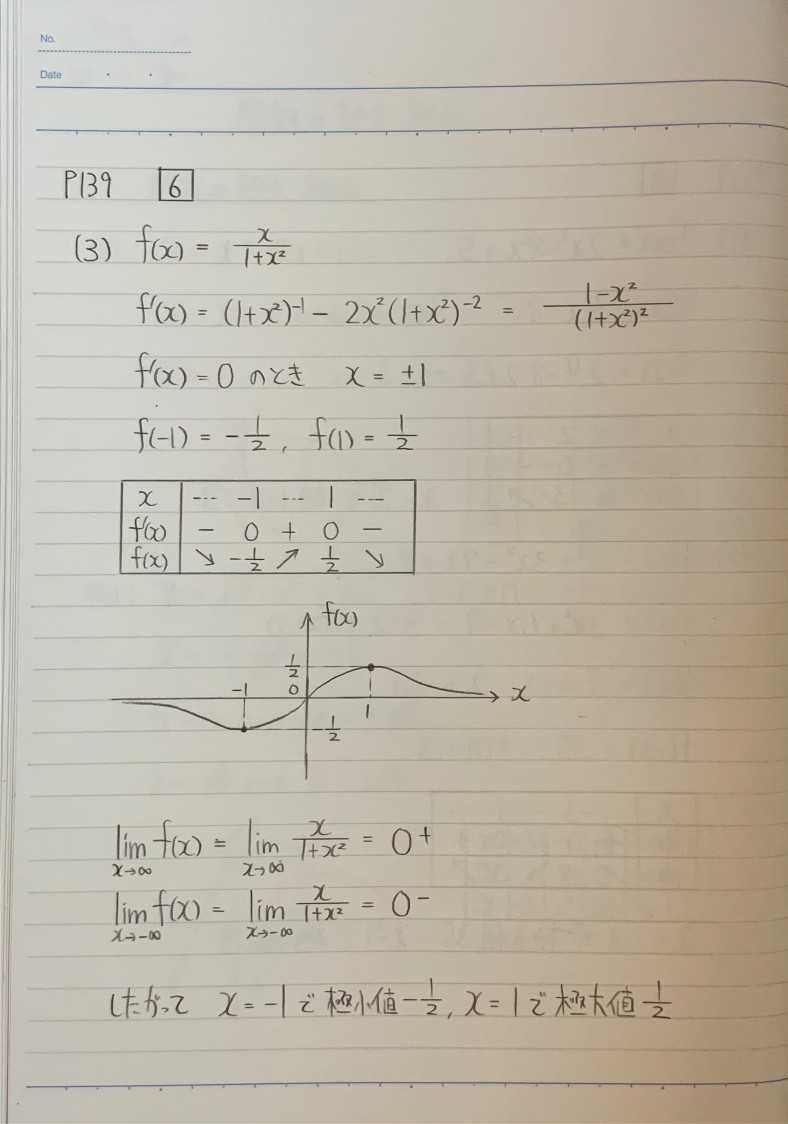 No.
Date
P139 6
(3) f(x) = x/(1+x²)
f'(x) = (1+x²)⁻¹ − 2x²(1+x²)⁻² = (1−x²)/(1+x²)²
f'(x) = 0 のとき x = ±1
f(-1) = -1/2, f(1) = 1/2
x ... -1 ... 1 ...
f'(x) − 0 + 0 −
f(x) ↘ -1/2 ↗ 1/2 ↘
f(x)
1/2
-1 0 x
1
-1/2
lim x→∞ f(x) = lim x→∞ x/(1+x²) = 0⁺
lim x→-∞ f(x) = lim x→-∞ x/(1+x²) = 0⁻
したがって x = -1 で 極小値 -1/2, x = 1 で 極大値 1/2